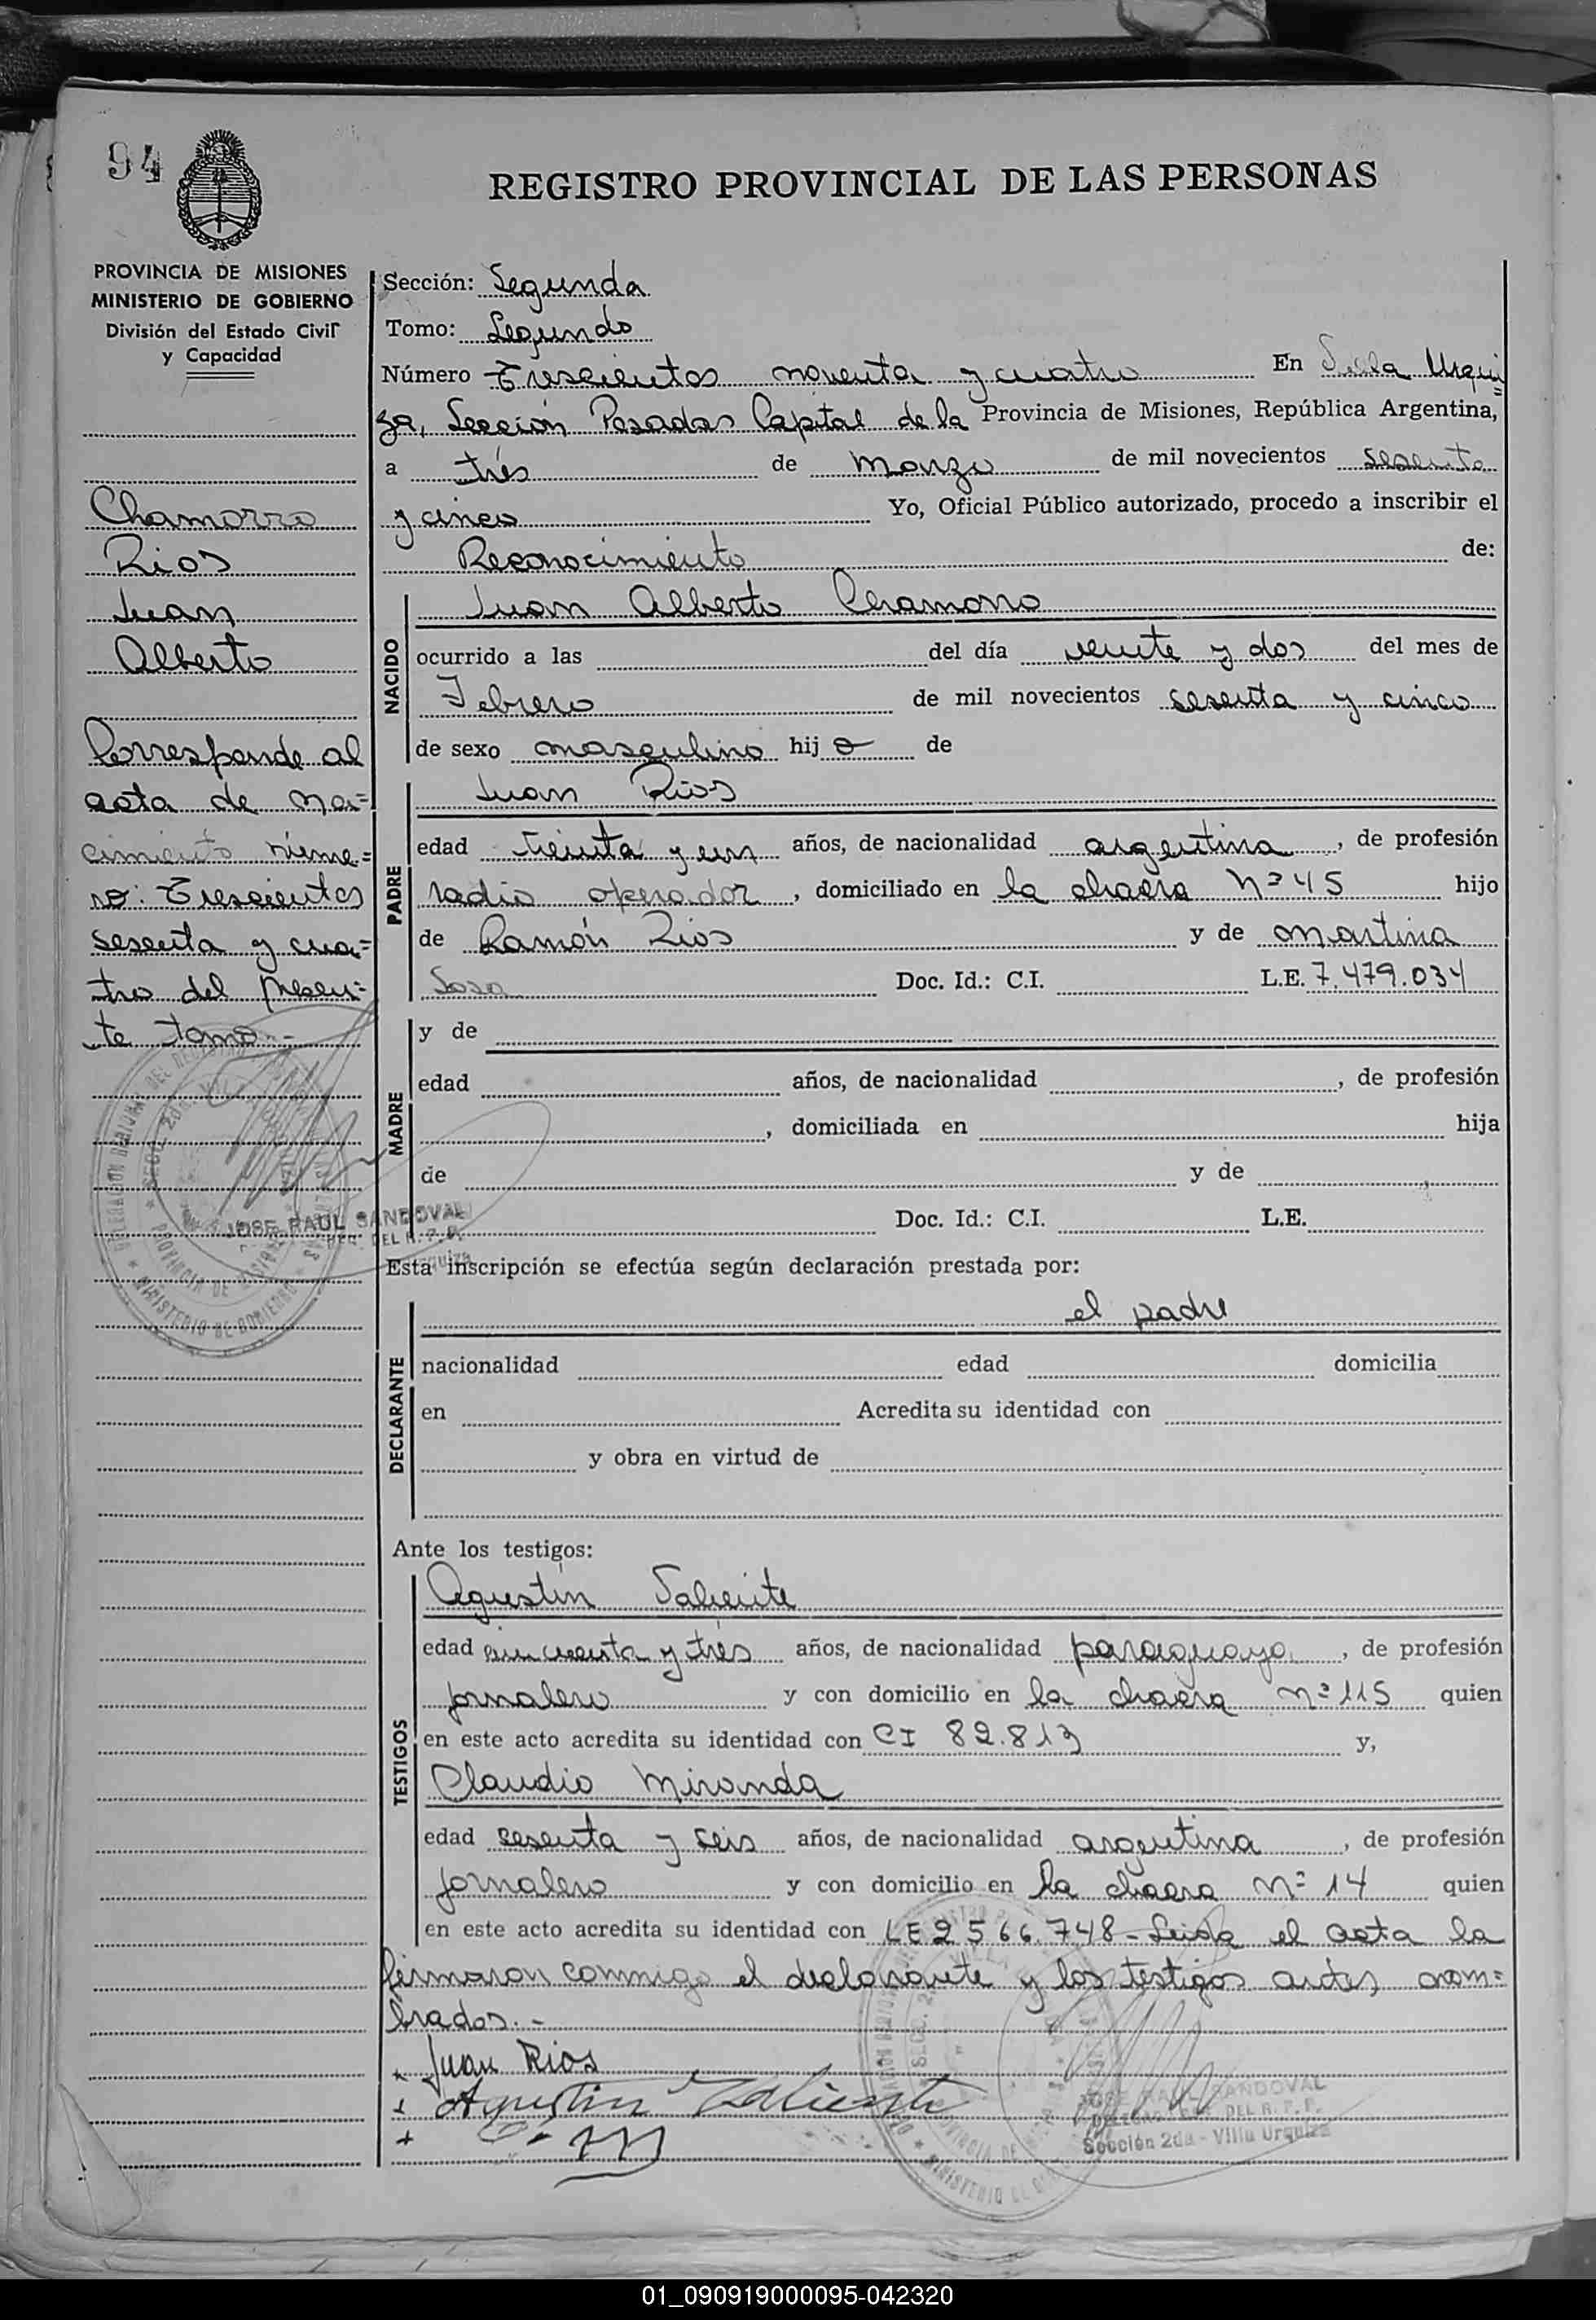 94
REGISTRO PROVINCIAL DE LAS PERSONAS
PROVINCIA DE MISIONES
MINISTERIO DE GOBIERNO
División del Estado Civil
y Capacidad
Chamorro
Rios
Juan
Alberto
Corresponde al
acta de na=
cimiento núme=
ro: Trescientos
sesenta y cua=
tro del presen=
te tomo.-
Sección: Segunda
Tomo: Segundo
Número Trescientos noventa y cuatro En Villa Urqui=
za, Sección Posadas Capital de la Provincia de Misiones, República Argentina,
a trés de Marzo de mil novecientos sesenta
y cinco Yo, Oficial Público autorizado, procedo a inscribir el
Reconocimiento de:
NACIDO
Juan Alberto Chamorro
ocurrido a las del día veinte y dos del mes de
Febrero de mil novecientos sesenta y cinco
de sexo masculino hijo de
PADRE
Juan Rios
edad treinta y un años, de nacionalidad argentina, de profesión
radio operador, domiciliado en la chacra Nº 45 hijo
de Ramón Rios y de Martina
Sosa Doc. Id.: C.I. L.E. 7.479.034
MADRE
y de
edad años, de nacionalidad , de profesión
, domiciliada en hija
de y de
Doc. Id.: C.I. L.E.
JOSE RAUL SANDOVAL
DEL R. P. P.
Esta inscripción se efectúa según declaración prestada por:
DECLARANTE
el padre
nacionalidad edad domicilia
en Acredita su identidad con
y obra en virtud de
Ante los testigos:
TESTIGOS
Agustín Valiente
edad cincuenta y trés años, de nacionalidad paraguaya, de profesión
jornalero y con domicilio en la chacra nº 115 quien
en este acto acredita su identidad con CI 82.813 y,
Claudio Miranda
edad sesenta y seis años, de nacionalidad argentina, de profesión
jornalero y con domicilio en la chacra Nº 14 quien
en este acto acredita su identidad con LE 2566.748- Leida el acta la
firmaron conmigo el declarante y los testigos antes nom=
brados.-
Juan Rios
Agustin Valiente
JOSE RAUL SANDOVAL
DEL R. P. P.
Sección 2da - Villa Urquiza
01_090919000095-042320